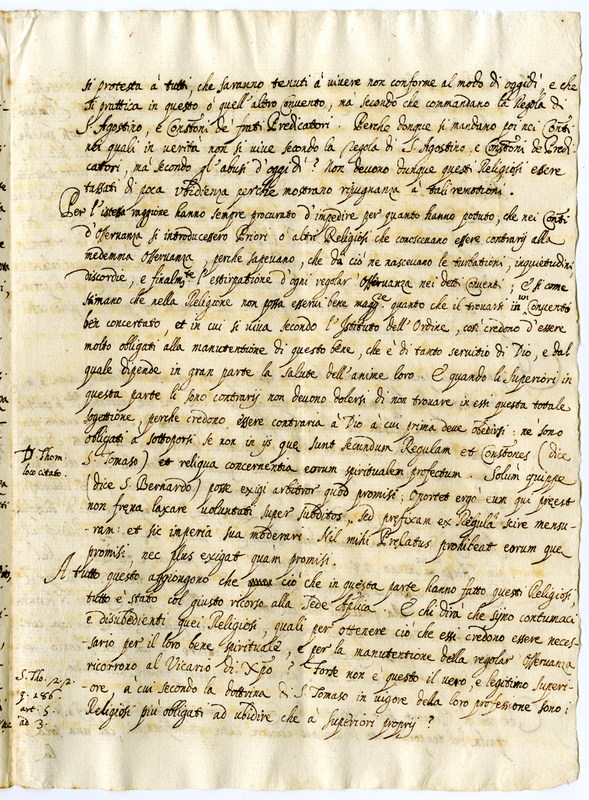 si protesta à tutti, che saranno tenuti à vivere non conforme al modo di oggidì, e che
si prattica in questo ò quell'altro Convento, ma secondo che commandano la Regola di
S. Agostino, e Constoni de' frati Predicatori. Perche donque si mandano poi nei Conti
nti quali in verità non si vive secondo la Regola di S. Agostino e Constoni de Predi-
catori, mà secondo gl'abusi d'oggidì? Non devono dunque questi Religiosi essere
tassati di poca ubidienza perche mostrano ripugnanza à tali remotioni.
Per l'istessa raggione hanno sempre procurato d'impedire per quanto hanno potuto, che nei Conti
d'Osservanza si introducessero Priori ò altri Religiosi che conoscevano essere contrarij alla
medemma Osservanza, perche sapevano, che dà ciò ne nascevano le turbationi, inquietudini
discordie, e finalmte l'estirpatione d'ogni regolar Osservanza nei detti Conventi; E si come
stimano che nella Religione non possa esservi bene magge quanto che il trovarsi in un Convento
ben concertato, et in cui si viva secondo l'Istituto dell'Ordine, così credono d'essere
molto obligati alla manutentione di questo bene, che è di tanto servitio di Dio, e dal
quale dipende in gran parte la salute dell'anime loro. E quando li Superiori in
questa parte li sono contrarij non devono dolersi di non trovare in essi questa totale
sogettione, perche credono essere contraria à Dio a cui prima deve obedirsi: ne sono
obligati à sottoporsi se non in ijs que sunt secundum Regulam et Constones (dice
S. Tomaso) et reliqua concernentia eorum spiritualem profectum. Solum quippe
(dice S. Bernardo) posse exigi arbitror quod promisi; Oportet ergo eum qui preest
non frena laxare voluntati super subditos, sed prefixam ex Regula scire mensu-
ram: et sic imperia sua moderari. Nil mihi Prelatus prohibeat eorum que
promisi: nec plus exigat quàm promisi.
D. Thom.
loco citato.
A tutto questo aggiongono che ciò che in questa parte hanno fatto questi Religiosi,
tutto è stato col giusto ricorso alla Sede Aplica. E chi dirà che sijno contumaci
e disubedienti quei Religiosi, quali per ottenere ciò che essi credono essere neces-
sario per il loro bene spirituale, e per la manutentione della regolar Osservanza
ricorrono al Vicario di Xpo? Forse non è questo il vero, e legitimo Superi-
ore, à cui secondo la dottrina di S. Tomaso in vigore della loro professione sono i
Religiosi più obligati ad ubidire che à superiori proprij?
S. Tho. 2. 2.
q. 186.
art. 5.
ad 3.